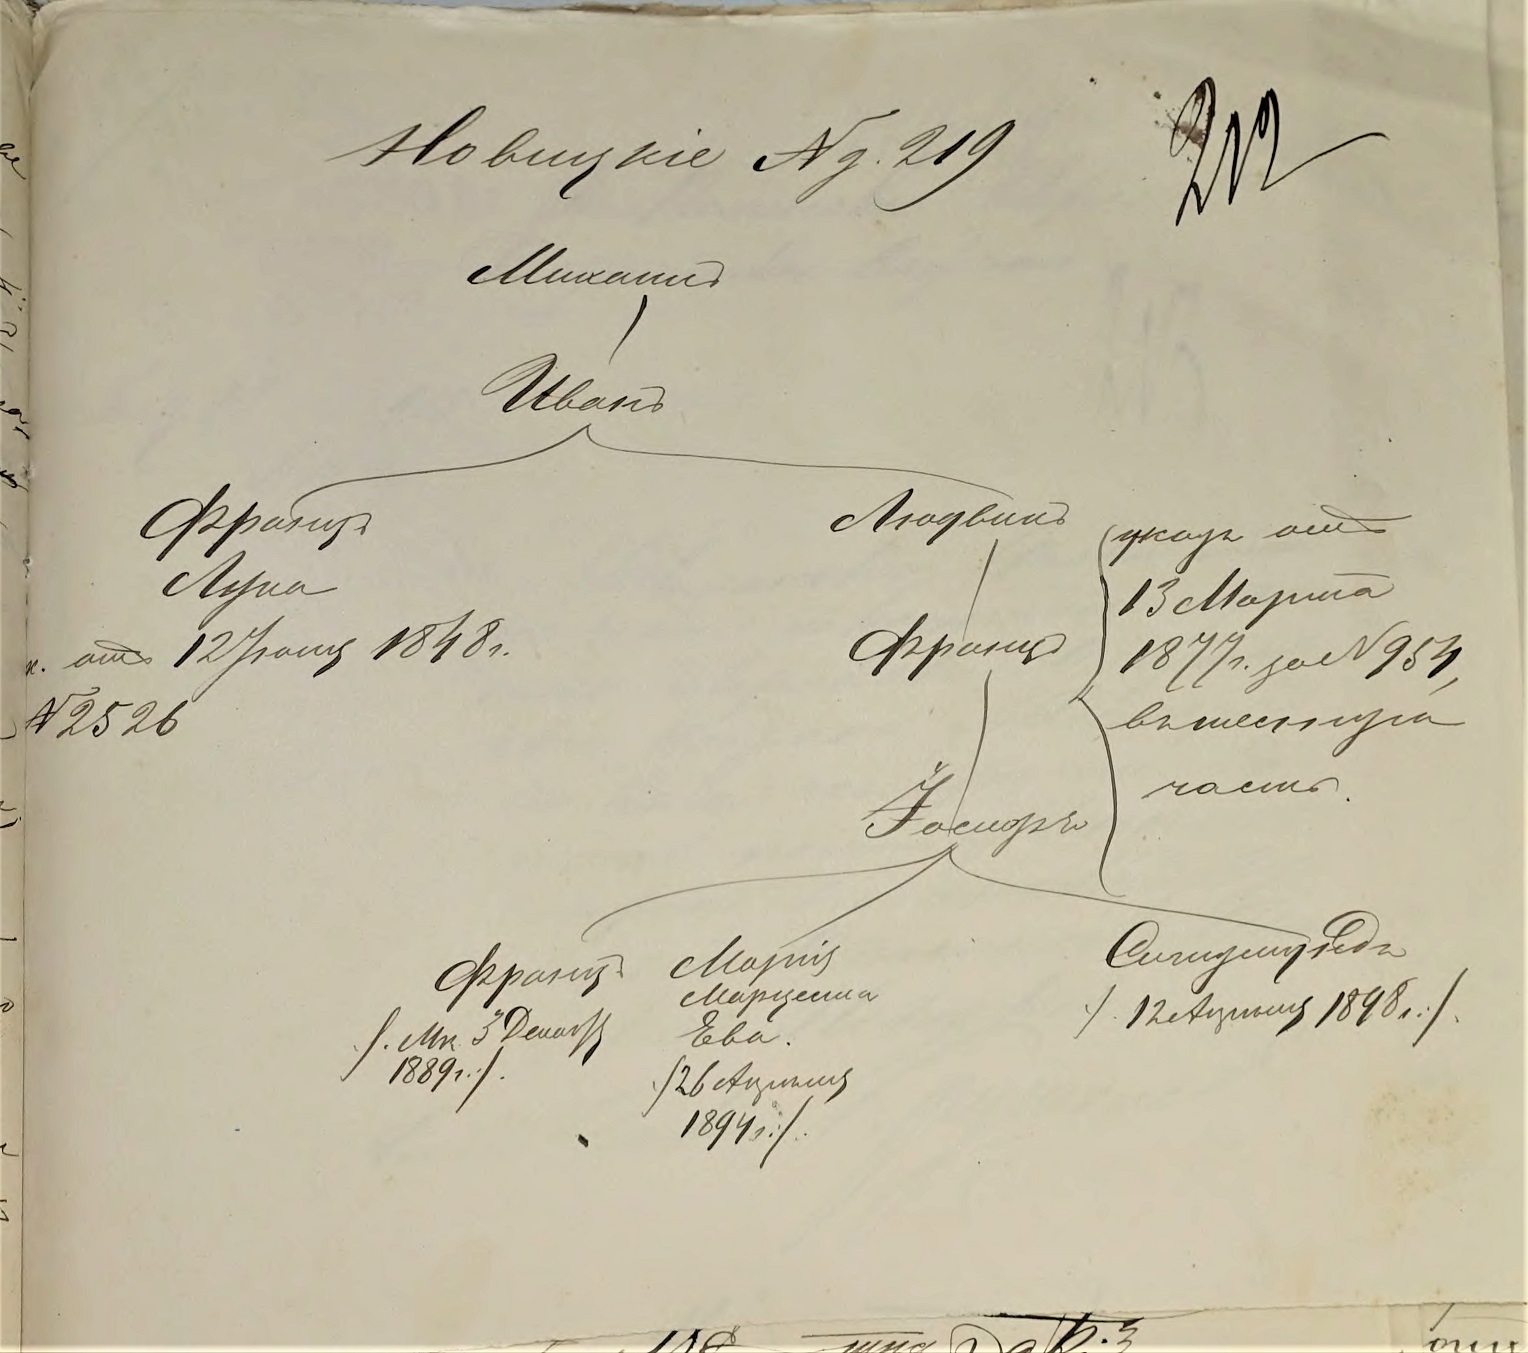 Новицкіе № д. 219
212
Михаилъ
Иванъ
Францъ
Лука
от 12 Іюня 1848 г.
№ 2526
Людвикъ
Францъ
Іосифъ
указъ отъ
13 Марта
1877 г. за № 954,
въ шестую
часть.
Францъ
/. Мк. 3 Декабря
1889 г. ./.
Марія
Марцелла
Ева.
/26 Апреля
1894 г. :/.
Сигизмундъ
/. 12 Апреля 1898 г. :/.